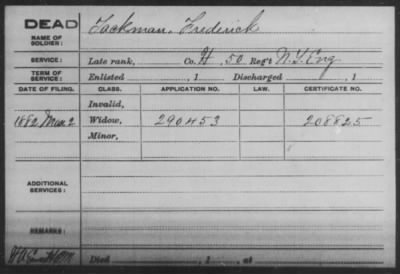 DEAD
NAME OF SOLDIER: Tackman, Frederick
SERVICE: Late rank, Co. H, 50 Reg't N.Y. Eng
TERM OF SERVICE: Enlisted , 1 Discharged , 1
DATE OF FILING. CLASS. APPLICATION NO. LAW. CERTIFICATE NO.
Invalid,
1882 Mar 2 Widow, 290453 208825
Minor,
ADDITIONAL SERVICES:
REMARKS:
Died , 1 , at